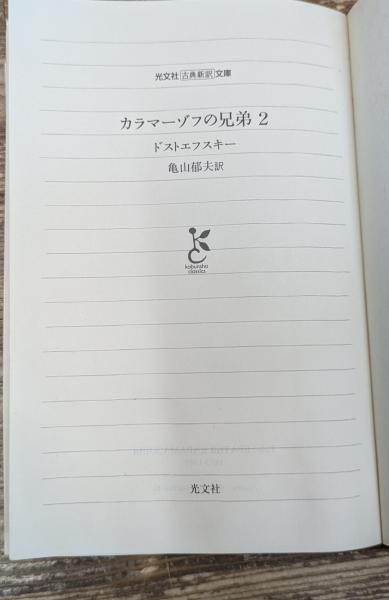 光文社古典新訳文庫
カラマーゾフの兄弟 2
ドストエフスキー
亀山郁夫訳
kobunsha
classics
光文社